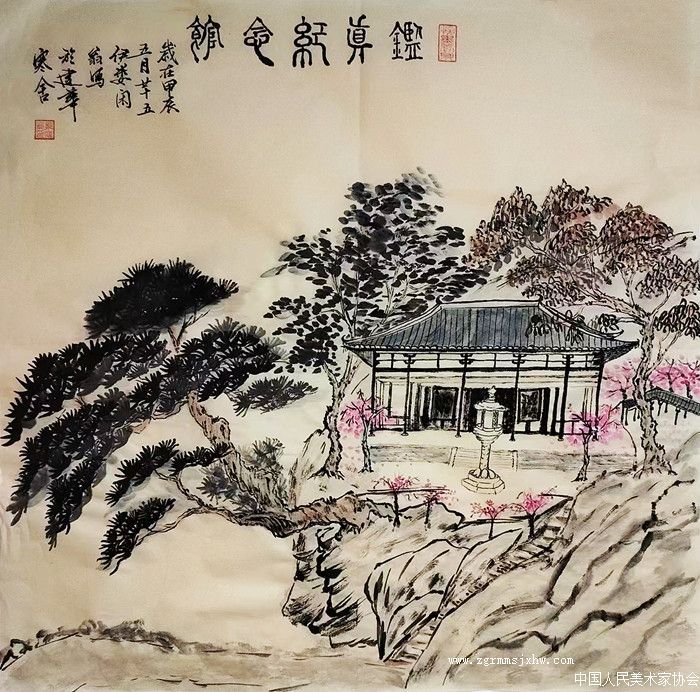 鑑真紀念館
歲在甲辰
五月廿五
伊婁閑
翁寫
於建華
寒舍
www.zgrmmsjxhw.com
中国人民美术家协会